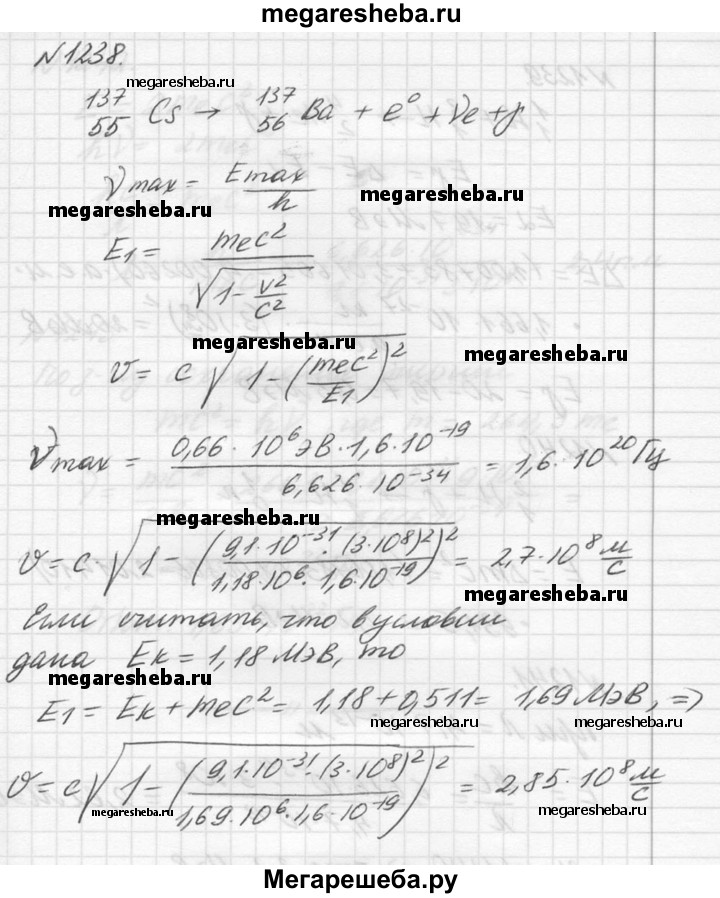 megaresheba.ru
N1238.
megaresheba.ru
¹³⁷₅₅ Cs → ¹³⁷₅₆ Ba + e⁰ + νe + γ
νmax = Emax / h
megaresheba.ru
megaresheba.ru
E₁ = mec² / √(1 - v²/c²)
megaresheba.ru
megaresheba.ru
v = c √(1 - (mec²/E₁)²)
νmax = 0,66 · 10⁶ эВ · 1,6 · 10⁻¹⁹ / 6,626 · 10⁻³⁴ = 1,6 · 10²⁰ Гц
megaresheba.ru
v = c · √(1 - (9,1 · 10⁻³¹ · (3 · 10⁸)² / 1,18 · 10⁶ · 1,6 · 10⁻¹⁹)²) = 2,7 · 10⁸ м/с
megaresheba.ru
Если считать, что в условии
дана Eк = 1,18 МэВ, то
megaresheba.ru
E₁ = Eк + mec² = 1,18 + 0,511 = 1,69 МэВ, ⇒
megaresheba.ru
megaresheba.ru
v = c √(1 - (9,1 · 10⁻³¹ · (3 · 10⁸)² / 1,69 · 10⁶ · 1,6 · 10⁻¹⁹)²) = 2,85 · 10⁸ м/с
megaresheba.ru
megaresheba.ru
Мегарешеба.ру